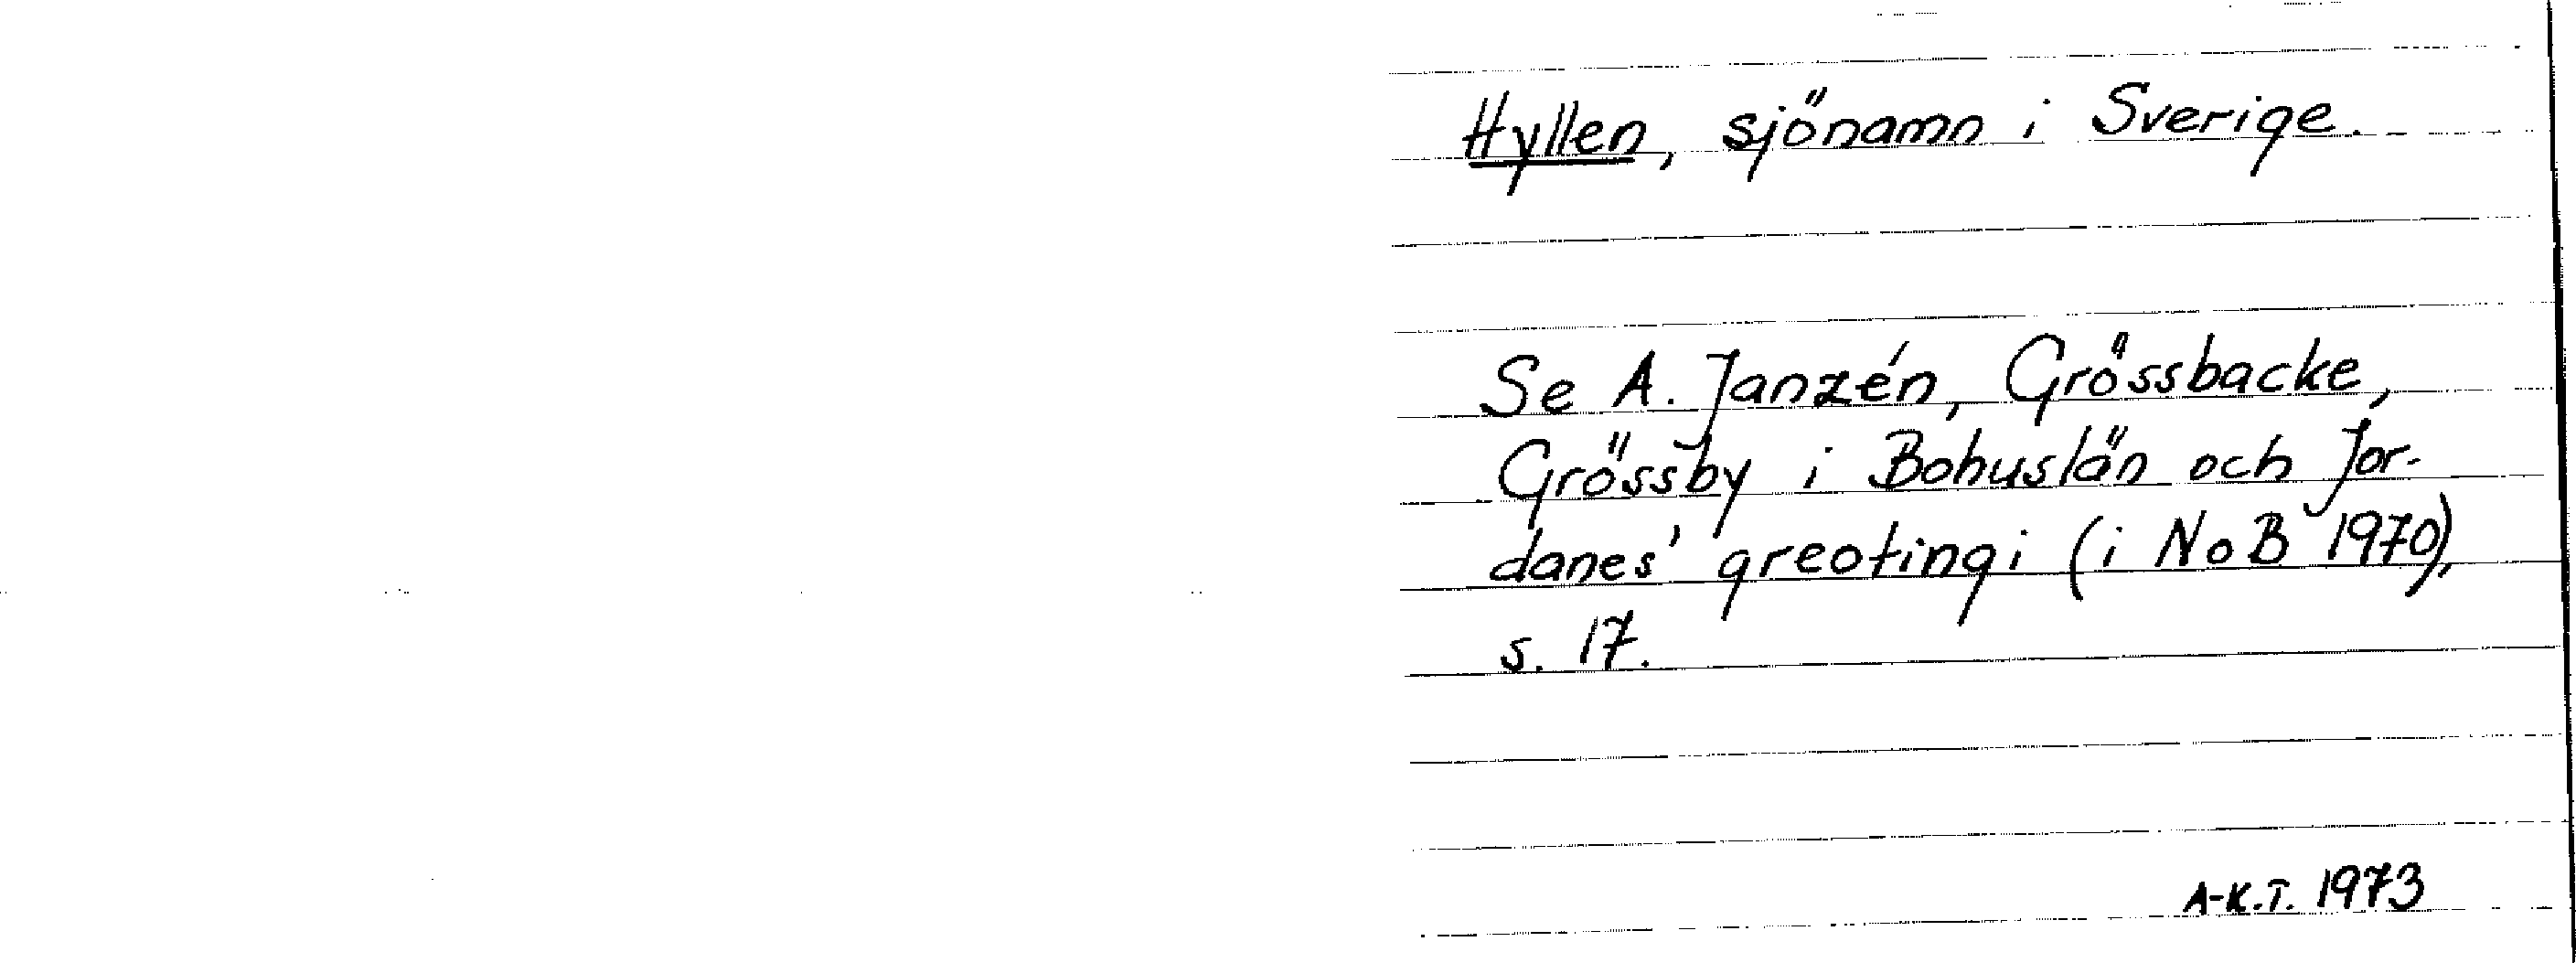 Hyllen, sjönamn i Sverige.
Se A. Janzén, Grössbacke,
Grössby i Bohuslän och Jor-
danes' greotingi (i NoB 1970),
s. 17.
A-K.T. 1973